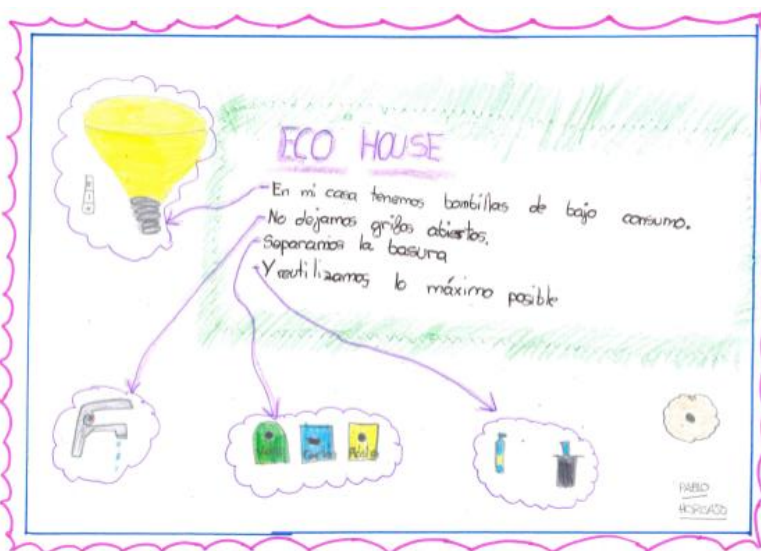 ECO HOUSE
- En mi casa tenemos bombillas de bajo consumo.
- No dejamos grifos abiertos.
- Separamos la basura
- Y reutilizamos lo máximo posible
PABLO